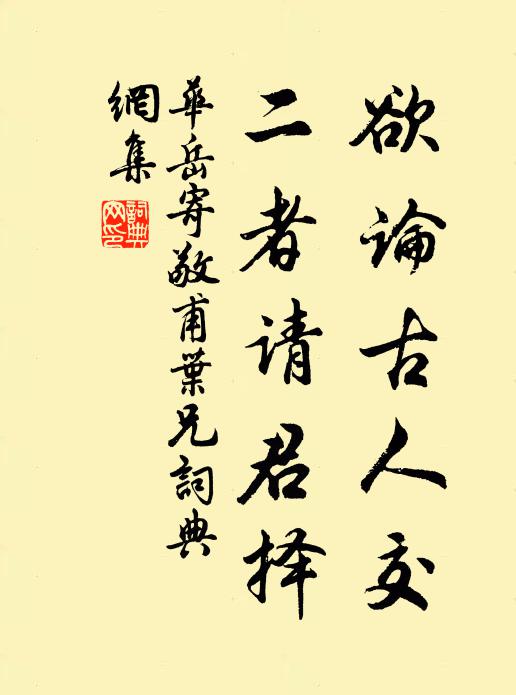 欲論古人交
二者请君择
華岳寄敬甫葉兄詞典
網集
詞典網印